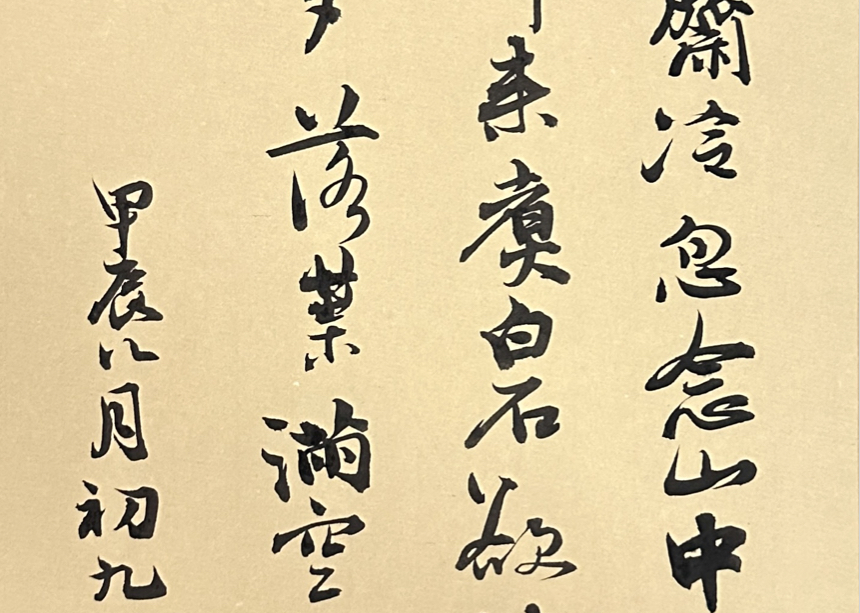 齋冷忽念山中
来煑白石欲
落葉滿空
甲辰八月初九